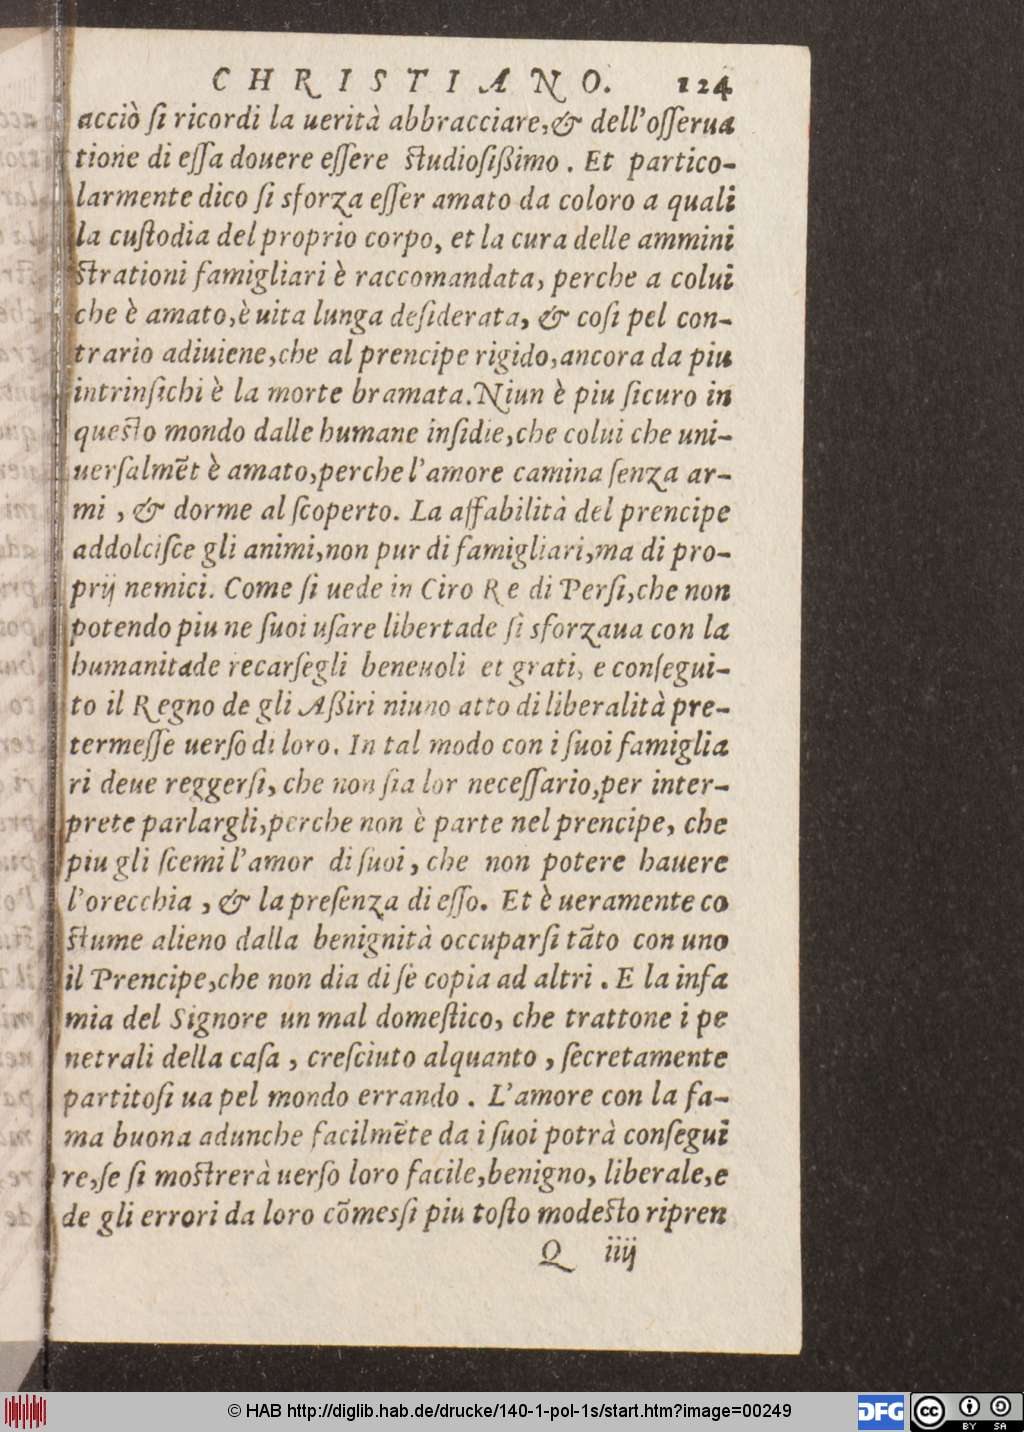 CHRISTIANO. 124
acciò ſi ricordi la uerità abbracciare,& dell'oſſerua
tione di eſſa douere eſſere ſtudioſißimo. Et partico-
larmente dico ſi sforza eſſer amato da coloro a quali
la cuſtodia del proprio corpo, et la cura delle ammini
ſtrationi famigliari è raccomandata, perche a colui
che è amato,è uita lunga deſiderata, & coſi pel con-
trario adiuiene,che al prencipe rigido,ancora da piu
intrinſichi è la morte bramata.Niun è piu ſicuro in
queſto mondo dalle humane inſidie,che colui che uni-
uerſalmẽt è amato,perche l'amore camina ſenza ar-
mi , & dorme al ſcoperto. La affabilità del prencipe
addolciſce gli animi,non pur di famigliari,ma di pro-
prij nemici. Come ſi uede in Ciro Re di Perſi,che non
potendo piu ne ſuoi uſare libertade ſi sforzaua con la
humanitade recarſegli beneuoli et grati, e conſegui-
to il Regno de gli Aßiri niuno atto di liberalità pre-
termeſſe uerſo di loro. In tal modo con i ſuoi famiglia
ri deue reggerſi, che non ſia lor neceſſario,per inter-
prete parlargli,perche non è parte nel prencipe, che
piu gli ſcemi l'amor di ſuoi, che non potere hauere
l'orecchia , & la preſenza di eſſo. Et è ueramente co
ſtume alieno dalla benignità occuparſi tãto con uno
il Prencipe,che non dia di ſè copia ad altri . E la infa
mia del Signore un mal domeſtico, che trattone i pe
netrali della caſa , creſciuto alquanto , ſecretamente
partitoſi ua pel mondo errando . L'amore con la fa-
ma buona adunche facilmẽte da i ſuoi potrà conſegui
re,ſe ſi moſtrerà uerſo loro facile,benigno, liberale,e
de gli errori da loro cõmesſi piu toſto modeſto ripren
Q iiij
© HAB http://diglib.hab.de/drucke/140-1-pol-1s/start.htm?image=00249
DFG
cc BY SA